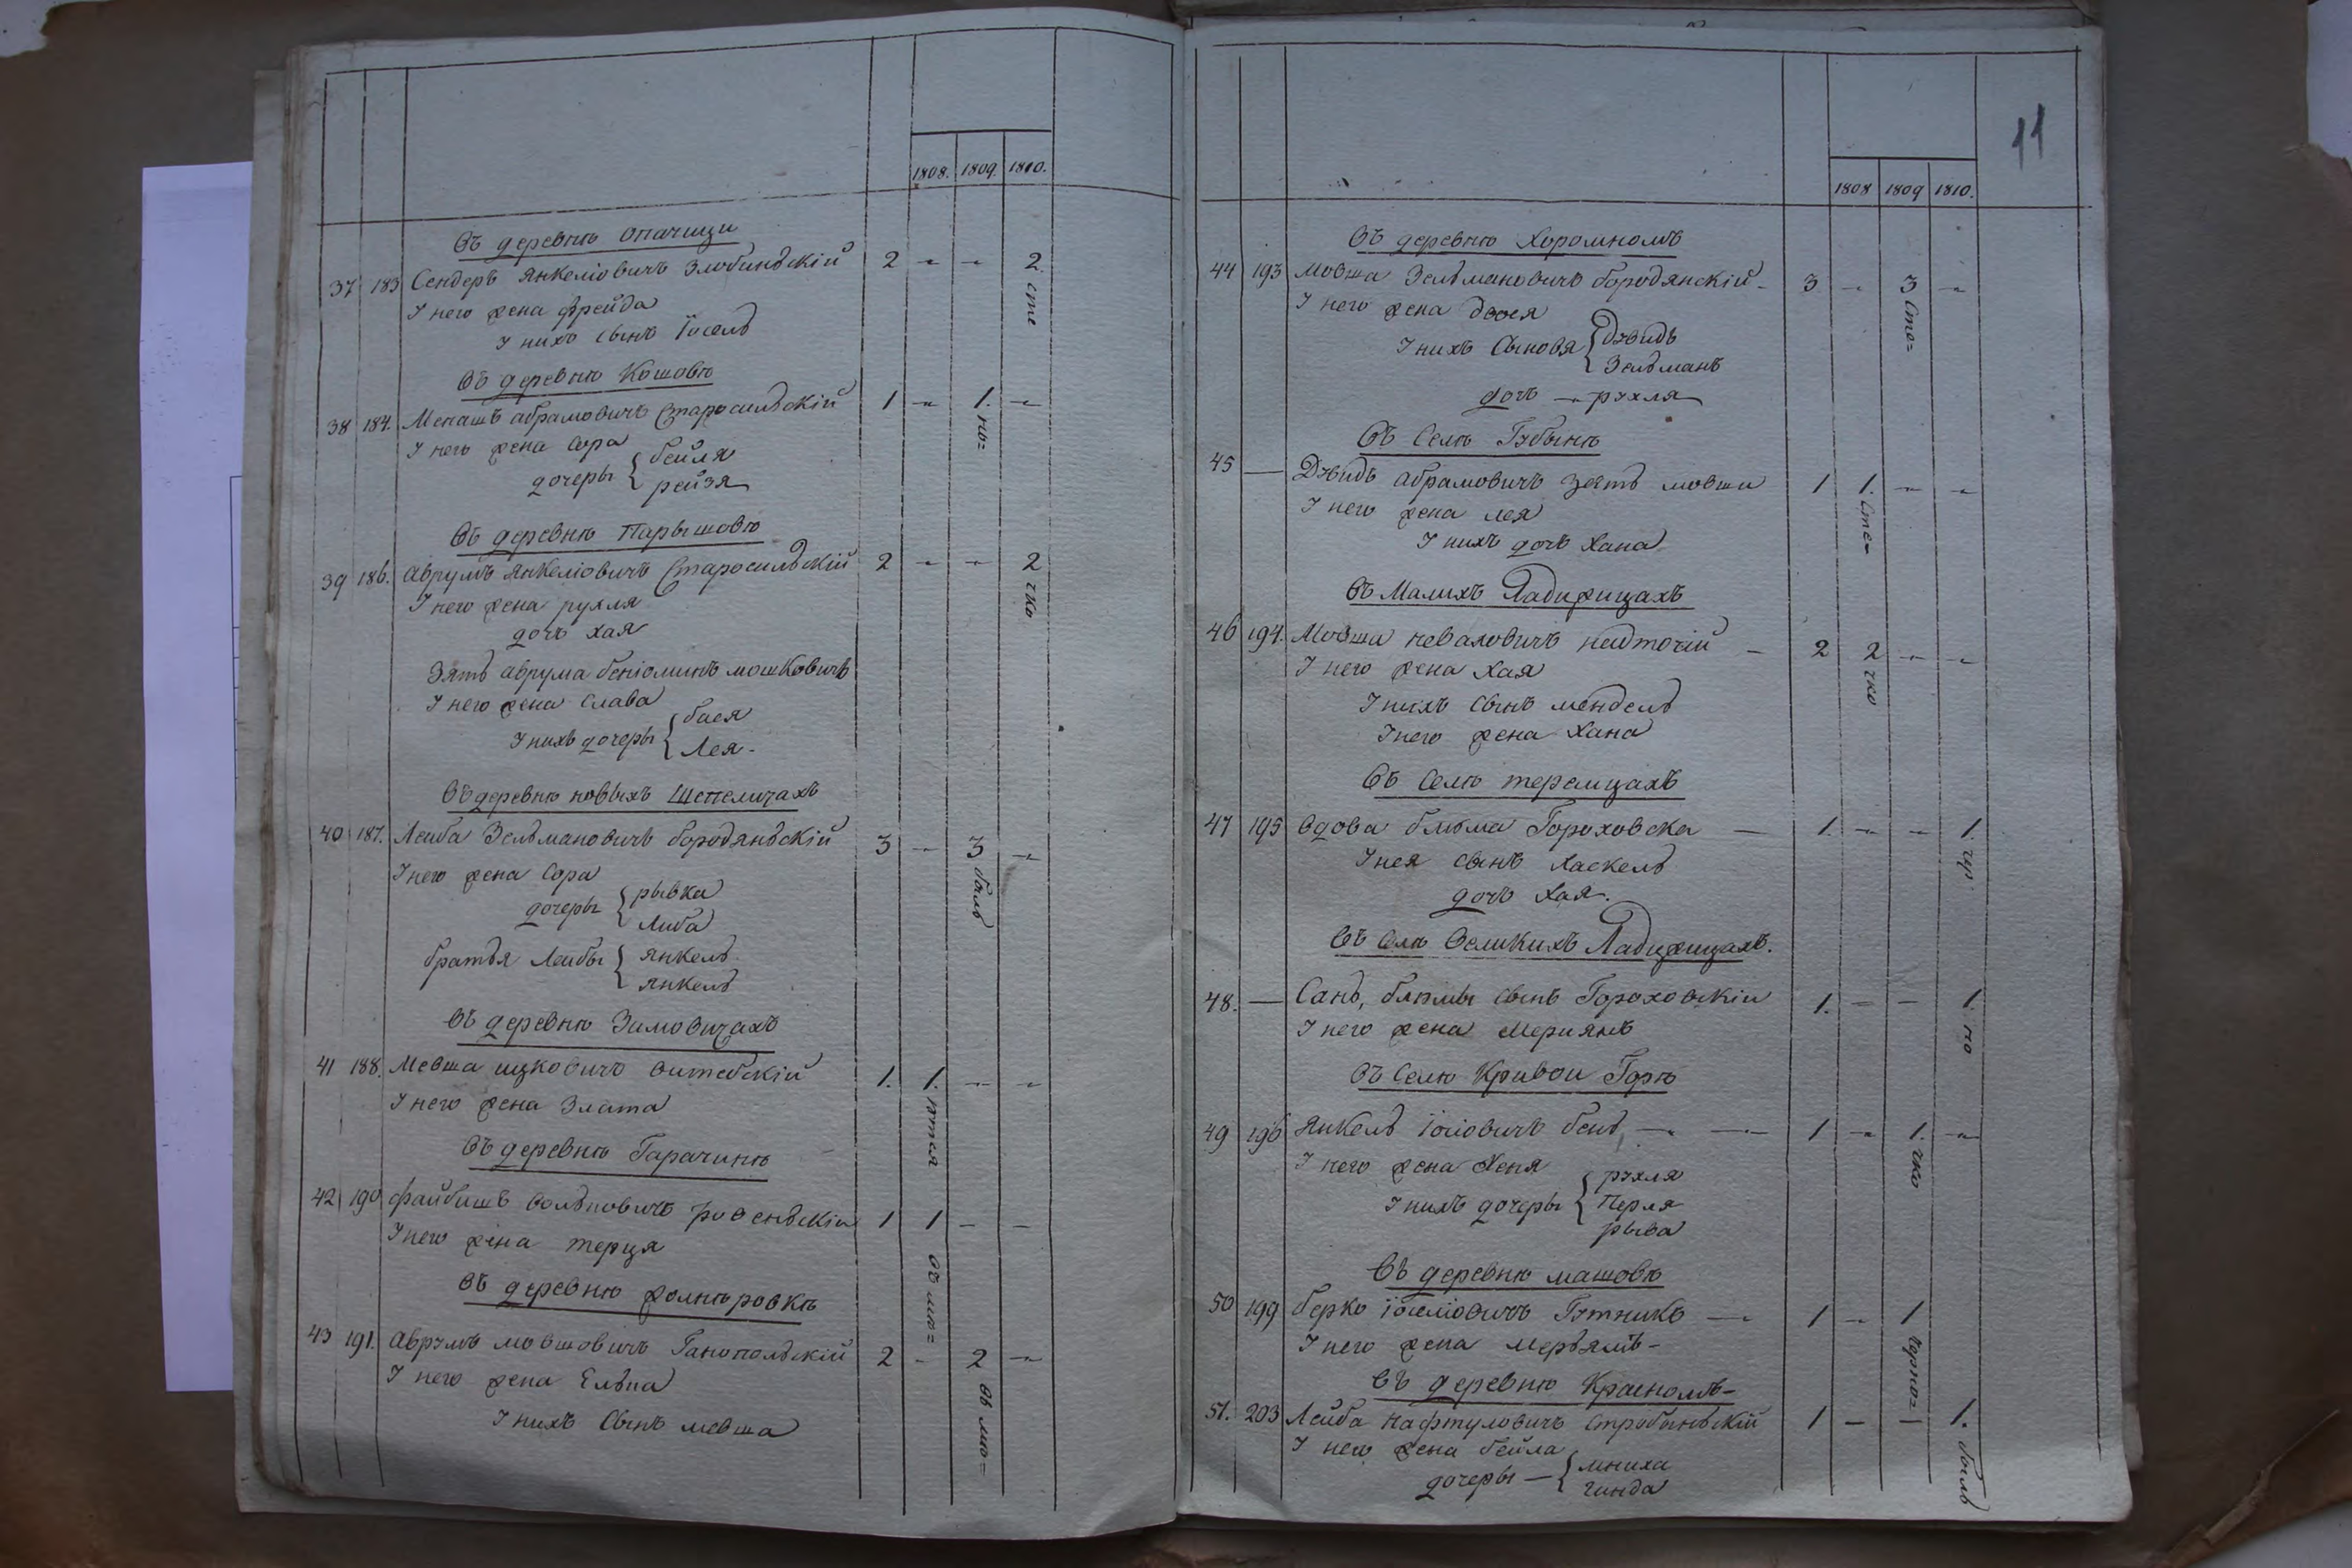 1808. 1809. 1810.
Въ деревнѣ Опачици
37 183 Сендеръ Янкеліовичъ Злобинскій 2 - - 2 сте
У него жена Фрейда
У нихъ сынъ Іосель
Въ деревнѣ Кошовѣ
38 184. Менашъ Абрамовичъ Старосельскій 1 - 1. но=
У него жена Сора
дочеры { бейля
рейзя
Въ деревнѣ Парышовѣ
39 186. Аврумъ Янкеліовичъ Старосильскій 2 - - 2 чко
У него жена рухля
дочъ хая
Зять аврума беніоминъ мошковичъ
У него жена Слава
У нихъ дочеры { бася
Лея -
Въ деревнѣ новыхъ Шепеличахъ
40 187. Лейба Зельмановичъ бородяньскій 3 - 3 - боль
У него жена Сора
дочеры { рывка
Либа
братья Лейбы { янкель
янкель
Въ деревнѣ Зимовичахъ
41 188. Мовша ицковичъ витебскій 1. 1. - -
У него жена Злата
Въ деревнѣ Гарачинѣ
42 190 файбишъ вольповичъ 1 1 - -
У него жена терця
Въ деревнѣ
43 191. аврумъ мовшовичъ Ганопольскій 2 - 2 -
У него жена Ельпа
У нихъ Сынъ мовша
11
1808 1809 1810.
Въ деревнѣ Хоромномъ
44 193 Мовша Зельмановичъ бородянскій - 3 - 3 - Сте=
У него жена двося
У нихъ Сыновя { Дувидъ
Зельманъ
дочъ - рухля
Въ Селѣ Губынѣ
45 — Дувидъ абрамовичъ зять мовши 1 1. - - Сте=
У него жена лея
У нихъ дочъ Хана
Въ Малихъ Ладижицахъ
46 194. Мовша 2 2 - - чко
У него жена Хая
У нихъ Сынъ мендель
У него жена Хана
Въ Селѣ теремцахъ
47 195 Вдова блюма Гороховска — 1. - - 1.
У нея сынъ Хаскель
дочъ хая.
Въ Селѣ Великихъ Ладижицахъ.
48. — Сань, блюмы сынъ Гороховскій 1. - - 1. но
У него жена Мериямъ
Въ Селѣ Кривои Горѣ
49 196 Янкель іосіовичъ бень - — 1 - 1. - чко
У него жена Хеня
У нихъ дочеры { рухля
Перля
рыва
Въ деревнѣ машовѣ
50 199 берко іоселіовичъ Гутникъ — 1 - 1 Черно=
У него жена мерьямъ -
Въ деревнѣ Красномъ -
51. 203 Лейба Нафтуловичъ 1 - 1. боль
У него жена бейла
дочеры — { мниха
гинда